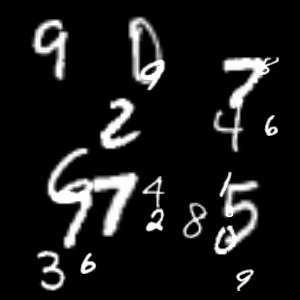 9 0 9
7 8
2 4 6
6 9 7 4 2 8 1 5 0
3 6 9